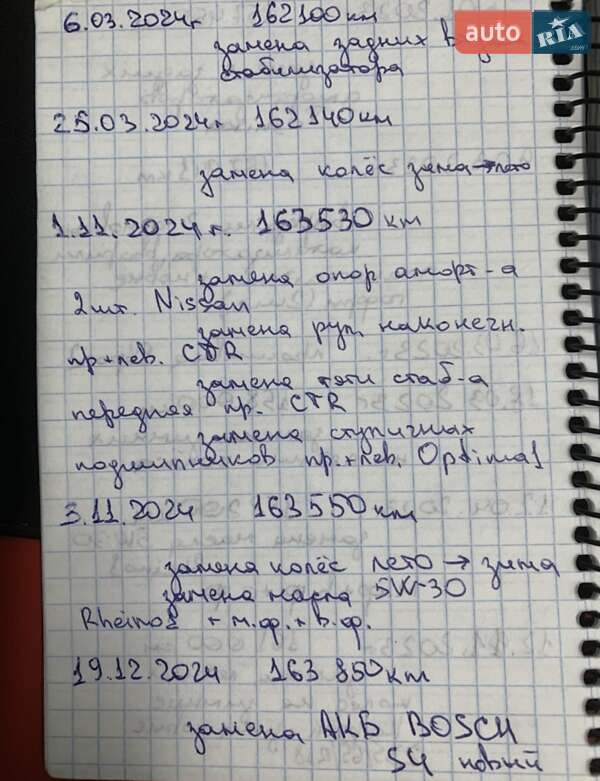 6.03.2024г 162100км
auto RIA.com
замена задних
стабилизатора
25.03.2024г. 162140км
замена колёс зима→лето
1.11.2024г. 163530км
замена опор аморт-а
2шт. Nissan
замена рул. наконечн.
пр.+лев. CTR
замена тяги стаб-а
передняя пр. CTR
замена ступичных
подшипников пр.+лев. Optimal
3.11.2024 163550км
замена колёс лето → зима
замена масла 5W-30
+ м.ф.+ в.ф.
19.12.2024 163 850км
замена АКБ BOSCH
S4 новий